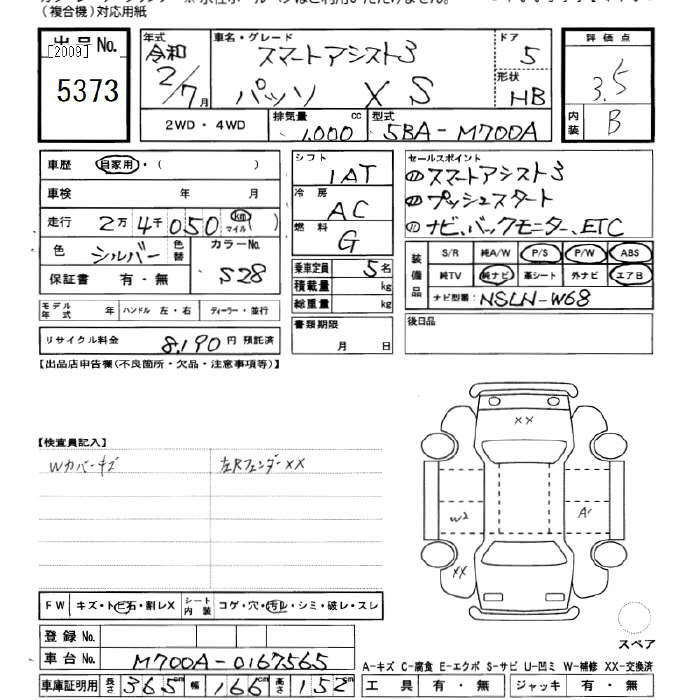 (複合機)対応用紙
出品No.
[2009]
5373
年式 令和 2/7月
車名・グレード スマートアシスト3
パッソ XS
ドア 5
形状 HB
評価点 3.5
内装 B
2WD・4WD
排気量 1,000 cc
型式 5BA-M700A
車歴 自家用・( )
車検 年 月
走行 2万4千050 km マイル ( )
色 シルバー 色替 カラーNo. S28
保証書 有・無
モデル年式 年 ハンドル 左・右 ディーラー・並行
リサイクル料金 8,190 円 預託済
シフト 1AT
冷房 AC
燃料 G
乗車定員 5名
積載量 kg
総重量 kg
書類期限 月 日
セールスポイント
① スマートアシスト3
① プッシュスタート
① ナビ、バックモニター、ETC
装備品
S/R 純A/W P/S P/W ABS
純TV 純ナビ 革シート 外ナビ エアB
ナビ型番: NSLN-W68
後日品
【出品店申告欄(不良箇所・欠品・注意事項等)】
【検査員記入】
Wカバーキズ
左Rフェンダーxx
xx
W2
A1
xx
FW キズ・トビ石・割レX シート内装 コゲ・穴・汚レ・シミ・破レ・スレ
登録No.
車台No. M700A-0167565
車庫証明用 長さ 365cm 幅 166cm 高さ 152cm
スペア
A-キズ C-腐食 E-エクボ S-サビ U-凹ミ W-補修 XX-交換済
工具 有・無 ジャッキ 有・無